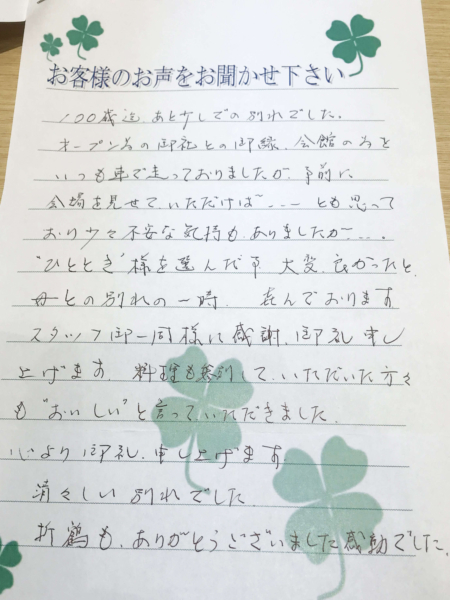 お客様のお声をお聞かせ下さい
100歳迄、あと少しでの別れでした。
オープン前の御社との御縁、会館の前を
いつも車で走っておりましたが、事前に
会場を見せて、いただけば〜... とも思って
おり少々不安な気持も、ありましたが....
"ひととき"様を選んだ事 大変、良かったと、
母との別れの一時、喜んでおります
スタッフ御一同様に感謝、御礼申し
上げます。料理も参列して、いただいた方々
も"おいしい"と言っていただきました。
心より御礼、申し上げます。
清々しい別れでした。
折鶴も、ありがとうございました感動でした。